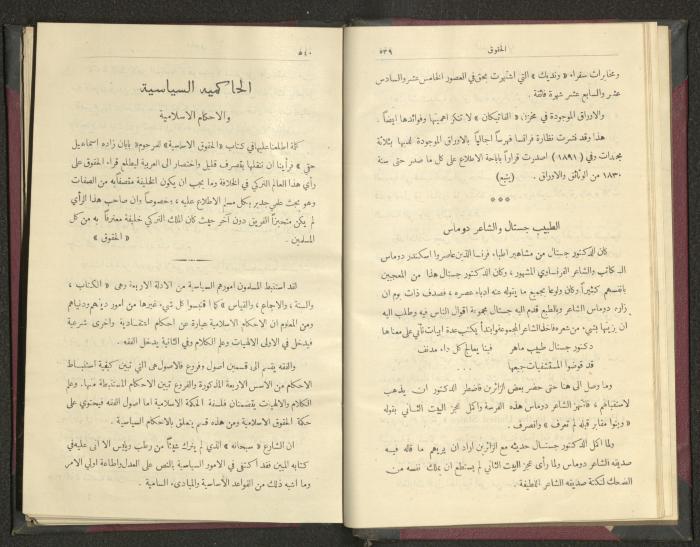 ٥٣٩
الحقوق
ومخابرات سفراء « ونديك » التي اشتهرت بحق في العصور الخامس عشر والسادس
عشر والسابع عشر شهرة فائقة .
والاوراق الموجودة في مخزن « الفاتيكان » لا تنكر اهميتها وفوائدها ايضاً .
هذا وقد نشرت نظارة فرانسا فهرساً اجمالياً بالاوراق الموجودة لديها بثلاثة
مجلدات وفي ( ١٨٩١ ) اصدرت قراراً باباحة الاطلاع على كل ما صدر حتى سنة
١٨٣٠ من الوثائق والاوراق . ( يتبع )
***
الطبيب جستال والشاعر دوماس
كان الدكتور جستال من مشاهير اطباء فرنسا الذين عاصروا اسكندر دوماس
الكاتب والشاعر الفرنساوي المشهور ، وكان الدكتور جستال هذا من المعجبين
بانفسهم كثيراً وكان ولوعاً بجميع ما يقوله عنه ادباء عصره ، فصدف ذات يوم ان
زاره دوماس الشاعر وبالطبع قدم اليه جستال مجموعة اقوال الناس فيه وطلب اليه
ان يزينها بشيء من شعره فاخذ الشاعر المجموعة وابتدأ يكتب عدة ابيات تأتي على معناها
دكتور جستال طبيب ماهر فينا يعالج كل داء مدنف
قد قوضوا المستشفيات جميعها . . .
وما وصل الى هنا حتى حضر بعض الزائرين فاضطر الدكتور ان يذهب
لاستقبالهم ، فانتهز الشاعر دوماس هذه الفرصة واكمل عجز البيت الثاني بقوله
« وبنوا مقابر قبله لم تعرف » وانصرف .
ولما اكمل الدكتور جستال حديثه مع الزائرين اراد ان يريهم ما قاله فيه
صديقه الشاعر دوماس ولما رأى عجز البيت الثاني لم يستطع ان يملك نفسه من
الضحك لنكتة صديقه الشاعر اللطيفة .
٥٤٠
الحاكمية السياسية
والاحكام الاسلامية
كلمة اطلعنا عليها في كتاب « الحقوق الاساسية » للمرحوم « بابان زاده اسماعيل
حقي » فرأينا ان ننقلها بتصرف قليل واختصار الى العربية ليطلع قراء الحقوق على
رأي هذا العالم التركي في الخلافة وما يجب ان يكون الخليفة متصفاً به من الصفات
وهو بحث علمي جدير بكل مسلم الاطلاع عليه ، وخصوصاً وان صاحب هذا الرأي
لم يكن متحيزاً لفريق دون آخر حيث كان الملك التركي خليفة معترفاً به من كل
المسلمين . « الحقوق »
لقد استنبط المسلمون امورهم السياسية من الادلة الاربعة وهي « الكتاب ،
والسنة ، والاجماع ، والقياس » كما اقتبسوا كل شيء غيرها من امور دينهم ودنياهم
ومن المعلوم ان الاحكام الاسلامية عبارة عن احكام اعتقادية واخرى شرعية
فيدخل في الاولى الالهيات وعلم الكلام وفي الثانية يدخل الفقه .
والفقه يقسم الى قسمين اصول وفروع فالاصول هي التي تبين كيفية استنباط
الاحكام من الاسس الاربعة المذكورة والفروع تبين الاحكام المستنبطة منها . وعلم
الكلام والالهيات يتضمنان فلسفة الحكمة الاسلامية اما اصول الفقه فيحتوي على
حكمة الحقوق الاسلامية ومن هذه قسم يتعلق بالاحكام السياسية .
ان الشارع « سبحانه » الذي لم يترك شيئاً من رطب ويابس الا اتى عليه في
كتابه المبين فقد اكتفى في الامور السياسية بالنص على العدل واطاعة اولي الامر
وما اشبه ذلك من القواعد الأساسية والمبادىء السامية .